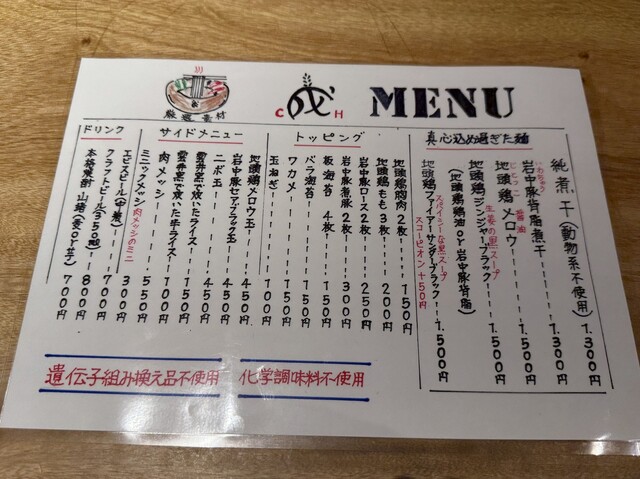 厳選素材
C H
MENU
真心込め過ぎた麺
純煮干(動物系不使用)1.300円
いわちゅう
岩中豚背脂煮干----1.300円
地頭鶏メロウ-----1.500円
醤油
生姜の黒スープ
地頭鶏ジンジャーブラック--1.500円
(地頭鶏鶏油or岩中豚背脂)
スパイシーな黒スープ
地頭鶏ファイアーサンダーブラック--1.500円
スコーピオン+50円
トッピング
地頭鶏胸肉2枚---150円
地頭鶏もも3枚---200円
岩中豚ロース2枚---250円
岩中豚煮豚2枚---300円
板海苔4枚---150円
バラ海苔---150円
ワカメ---150円
玉ねぎ---100円
サイドメニュー
地頭鶏メロウ玉---450円
岩中豚セアブラック玉---450円
ニボ玉---450円
雲井窯で炊いたライス---200円
雲井窯で炊いた半ライス---150円
肉メッシ---500円
ミニックメッシ 肉メッシのミニ 300円
ドリンク
エビスビール(中瓶)---700円
クラフトビール(350㎖)---800円
本格焼酎 山ねこ(麦or芋)---700円
遺伝子組み換え品不使用
化学調味料不使用